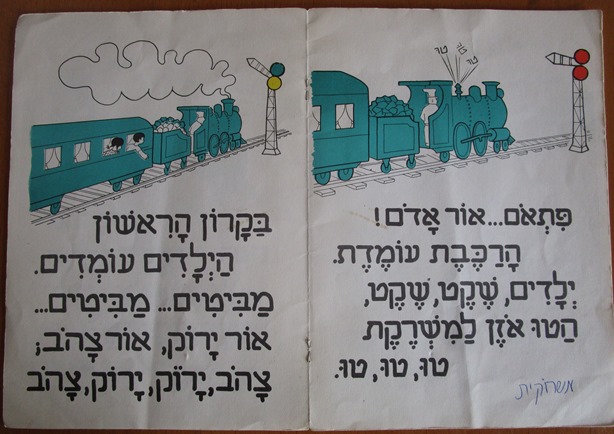 טוּ טוּ טוּ
פִּתְאֹם...אוֹר אָדֹם!
הָרַכֶּבֶת עוֹמֶדֶת.
יְלָדִים, שֶׁקֶט, שֶׁקֶט,
הַטּוּ אֹזֶן לַמִּשְׁרֶקֶת
טוּ, טוּ, טוּ.
משרוקית
בַּקָּרוֹן הָרִאשׁוֹן
הַיְלָדִים עוֹמְדִים.
מַבִּיטִים... מַבִּיטִים...
אוֹר יָרוֹק, אוֹר צָהֹב;
צָהֹב, יָרוֹק, יָרוֹק, צָהֹב